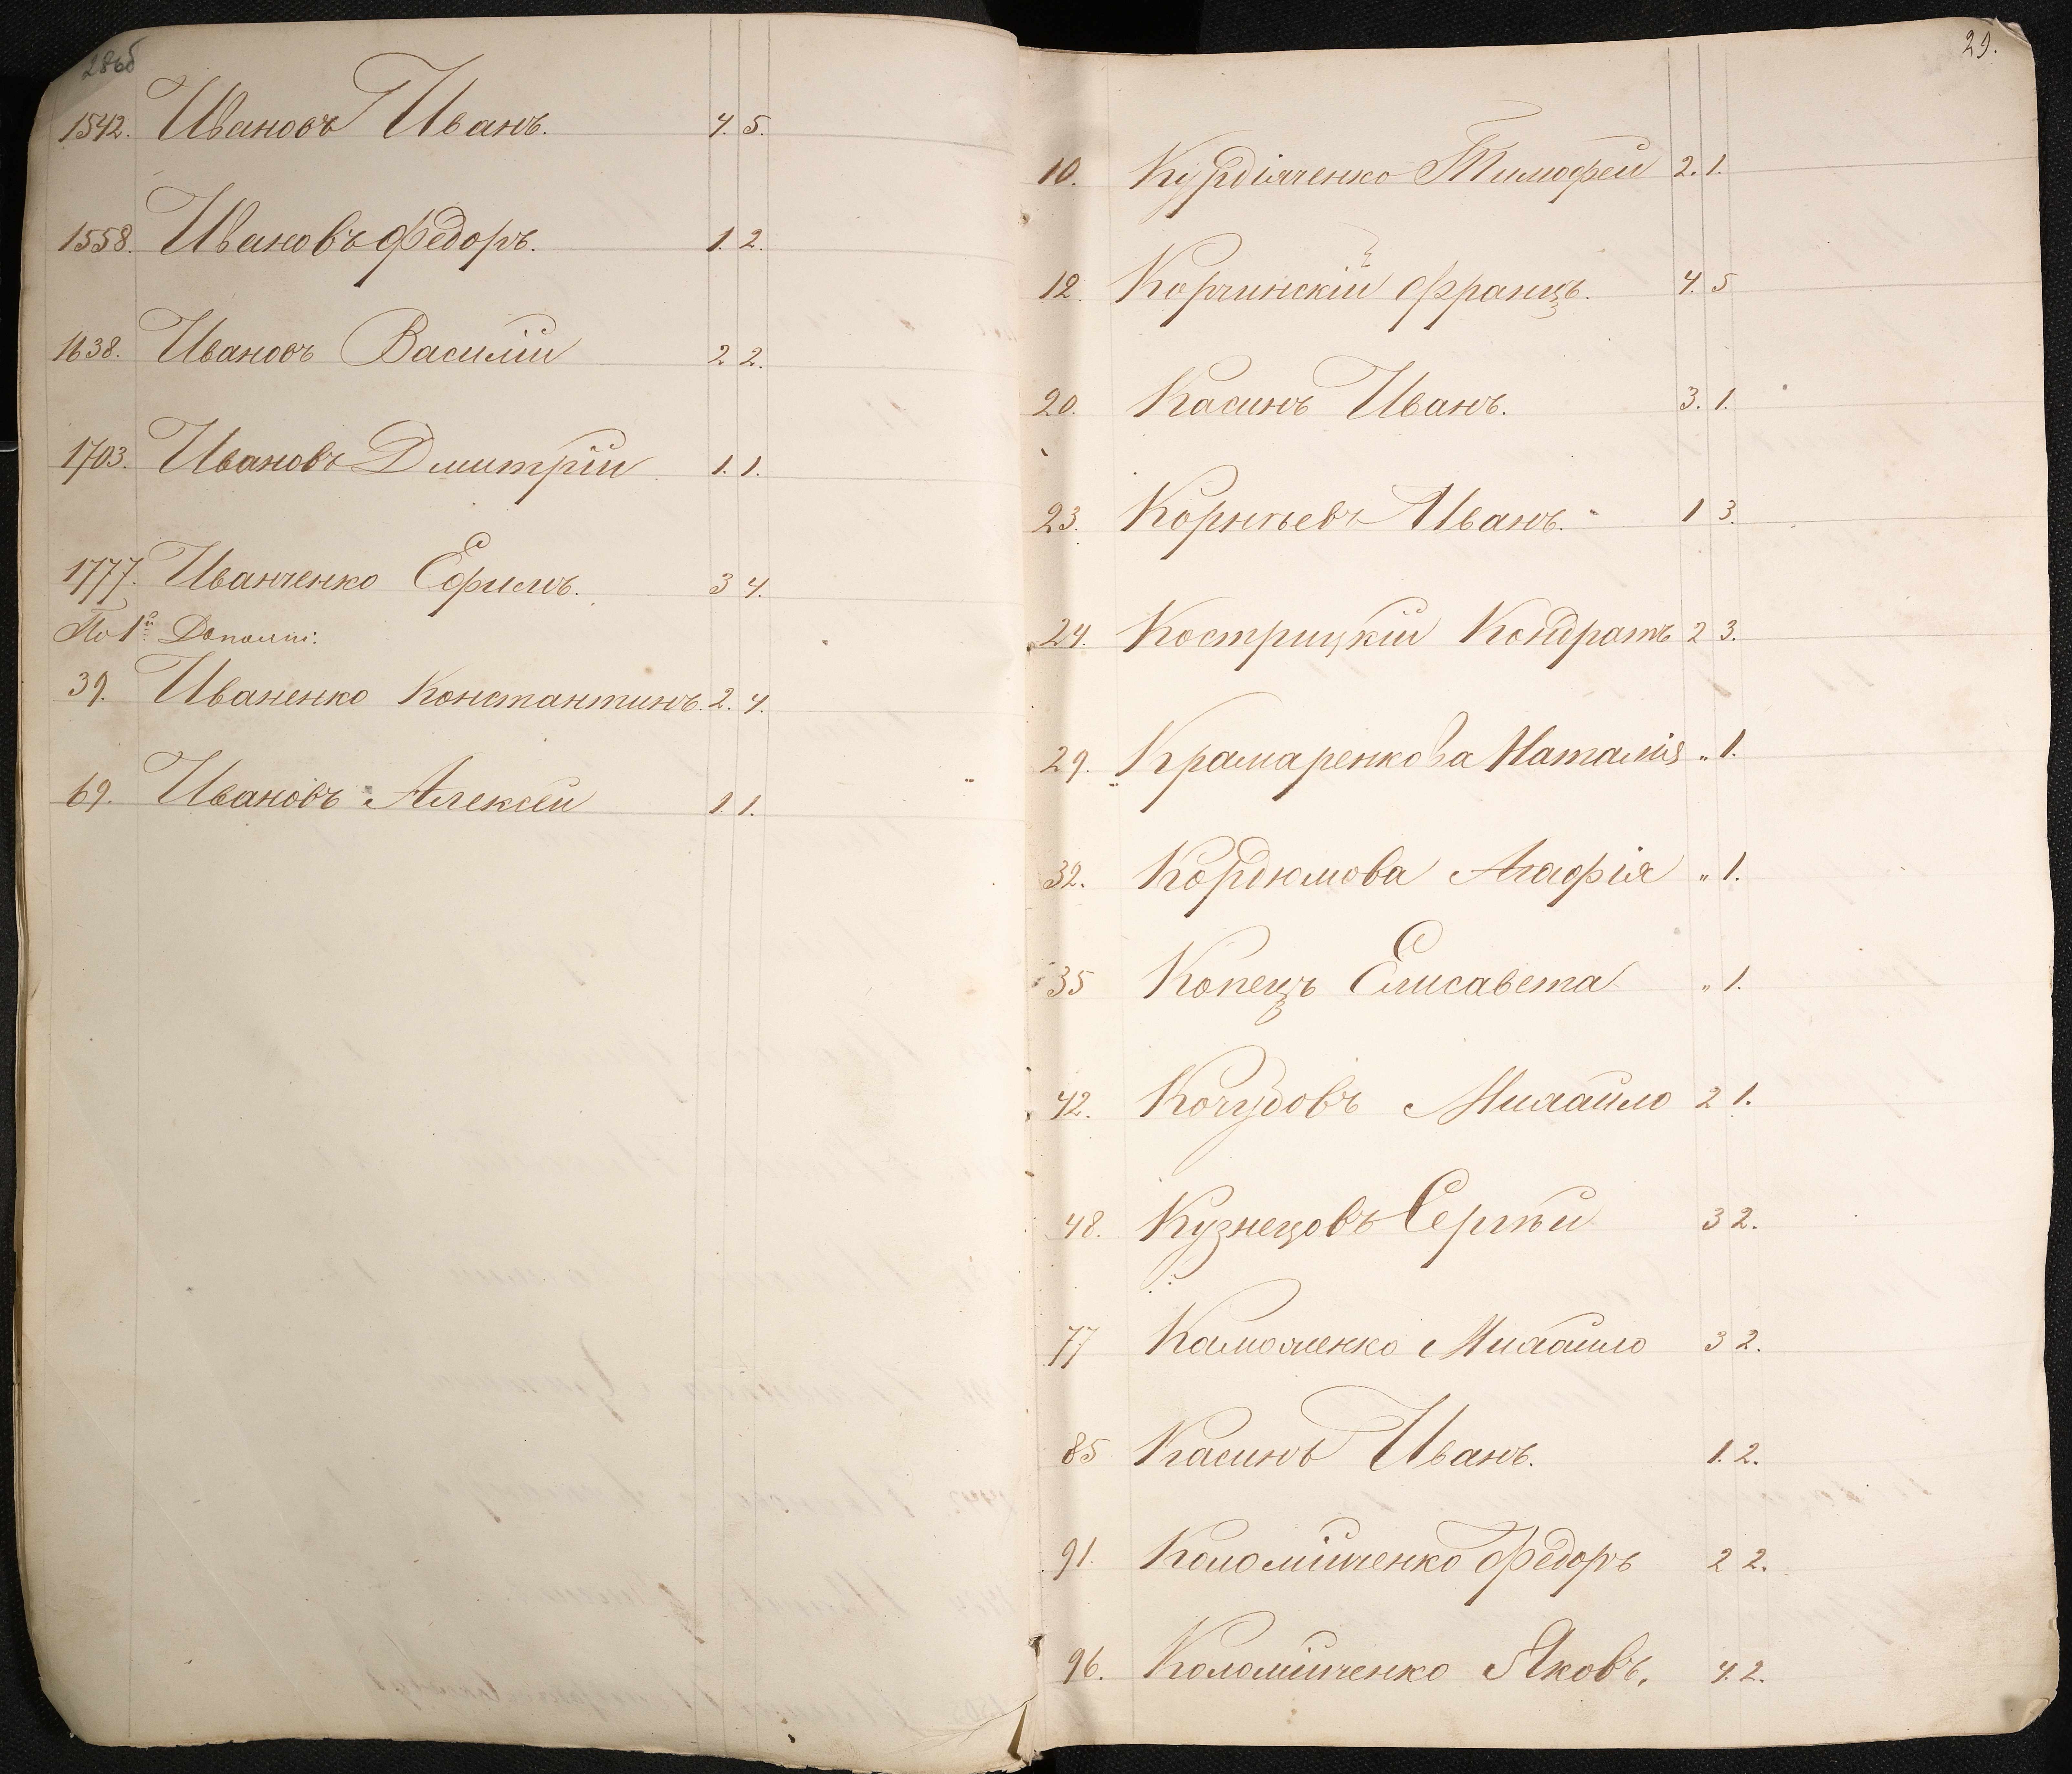 28об
1542. Ивановъ Иванъ. 4. 5.
1558. Ивановъ Федоръ. 1. 2.
1638. Ивановъ Василій 2 2.
1703. Ивановъ Дмитрій 1. 1.
1777. Иванченко Ефимъ. 3 4.
По 1й Дополни:
39. Иваненко Константинъ. 2. 4.
69. Ивановъ Алексѣй 1. 1.
29.
10. Тимофей 2. 1.
12. Корчинскій Францъ. 4. 5
20. Касинъ Иванъ. 3. 1.
23. Корнѣевъ Иванъ. 1 3.
24. Кострицкій Кондратъ 2 3.
29. Крамаренкова Наталія „ 1.
32. Кордюмова Агафія „ 1.
35 Копецъ Елисавета „ 1.
42. Кочудовъ Михайло 2 1.
48. Кузнецовъ Сергѣй 3 2.
77 Михайло 3 2.
85 Касинъ Иванъ. 1. 2.
91. Коломійченко Федоръ 2 2.
96. Коломійченко Яковъ. 4. 2.